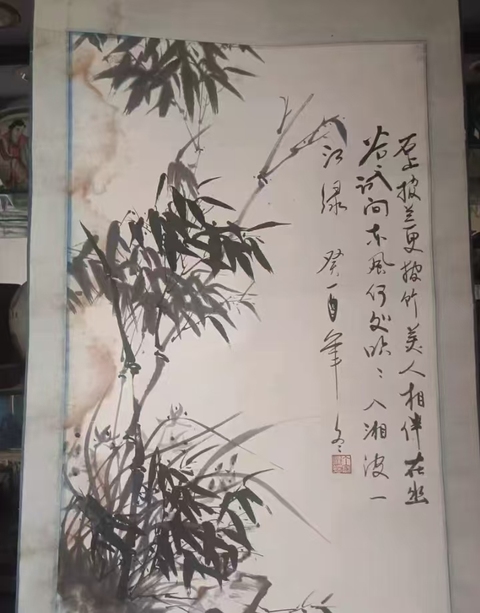 石上披兰更披竹美人相伴在幽
谷试问东风何处吹々入湘波一
江绿 癸酉年冬